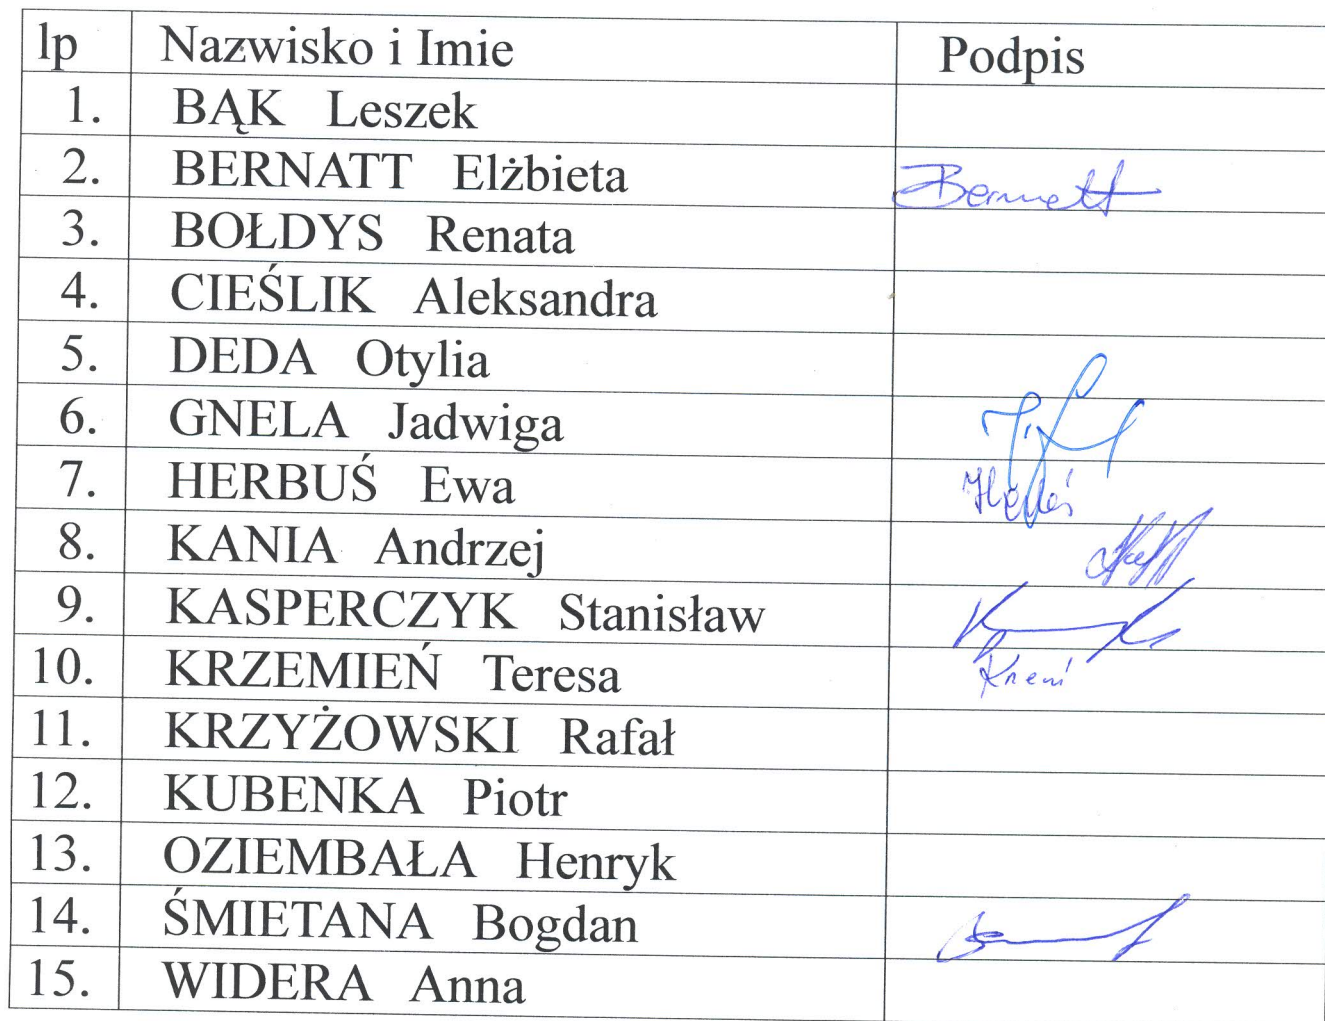 lp Nazwisko i Imie Podpis
1. BĄK Leszek
2. BERNATT Elżbieta Bernatt
3. BOŁDYS Renata
4. CIEŚLIK Aleksandra
5. DEDA Otylia
6. GNELA Jadwiga
7. HERBUŚ Ewa
8. KANIA Andrzej
9. KASPERCZYK Stanisław
10. KRZEMIEŃ Teresa
11. KRZYŻOWSKI Rafał
12. KUBENKA Piotr
13. OZIEMBAŁA Henryk
14. ŚMIETANA Bogdan
15. WIDERA Anna